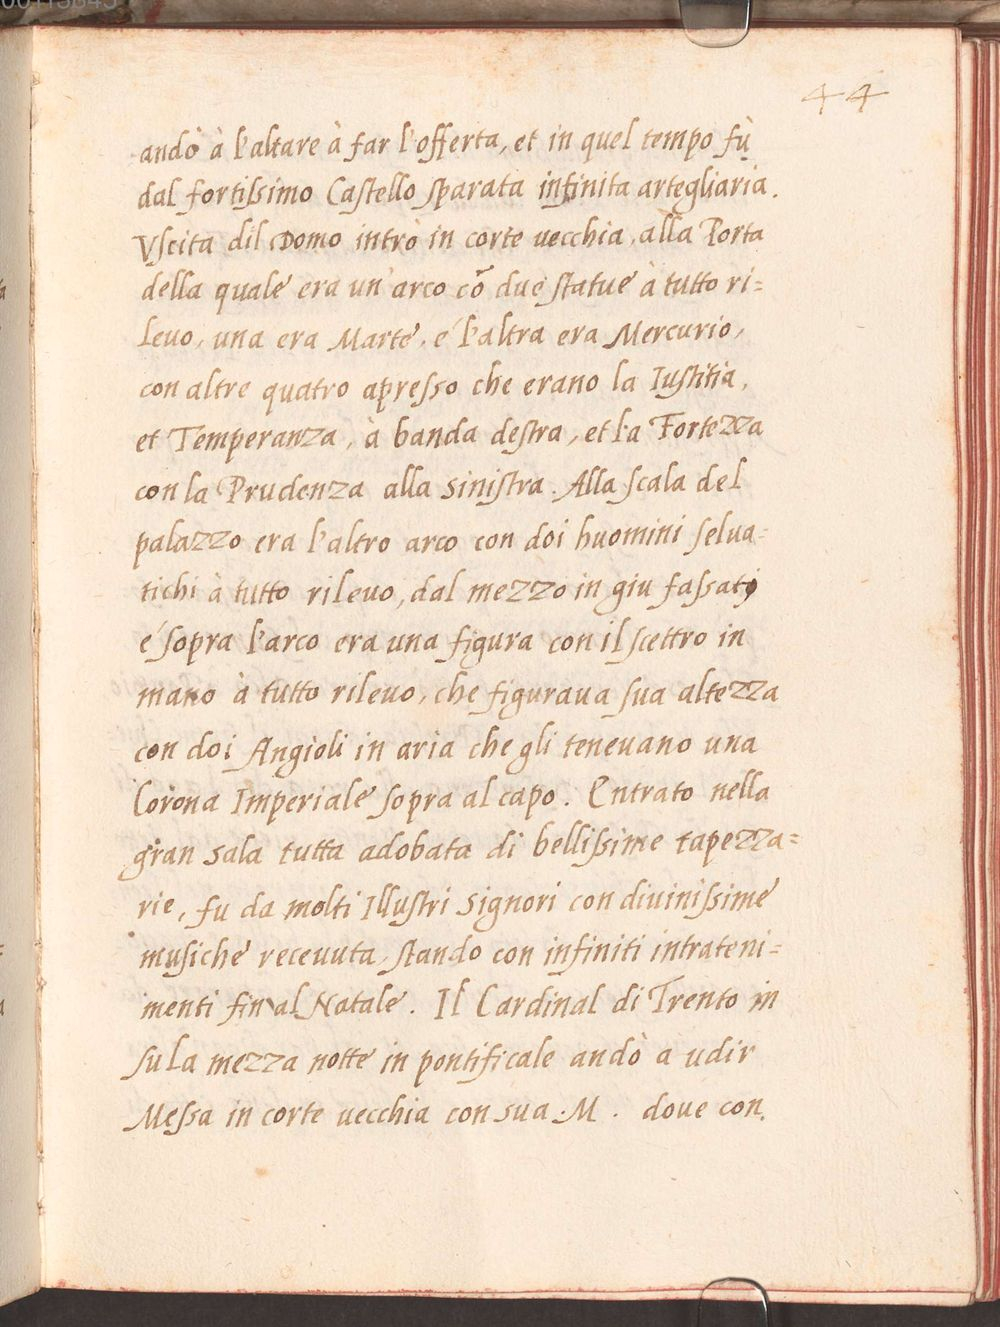 44
andò à l'altare à far l'offerta, et in quel tempo fù
dal fortiſsimo Caſtello ſparata infinita artegliaria.
Vſcita dil Domo intrò in corte uecchia, alla Porta
della quale era un'arco cõ due ſtatue à tutto ri=
leuo, una era Marte, e l'altra era Mercurio,
con altre quatro apreſso che erano la Iuſtitia,
et Temperanza, à banda deſtra, et la Fortezza
con la Prudenza alla siniſtra. Alla ſcala del
palazzo era l'altro arco con doi huomini ſelua=
tichi à tutto rileuo, dal mezzo in giu faſsati
e ſopra l'arco era una figura con il ſcettro in
mano à tutto rileuo, che figuraua ſua altezza
con doi Angioli in aria che gli teneuano una
Corona Imperiale ſopra al capo. Entrato nella
gran sala tutta adobata di belliſsime tapezza=
rie, fu da molti Illuſtri Signori con diuiniſsime
muſiche receuuta, ſtando con infiniti intrateni=
menti fin al Natale. Il Cardinal di Trento in
ſu la mezza notte in pontificale andò a udir
Meſsa in corte uecchia con sua .M. doue con,